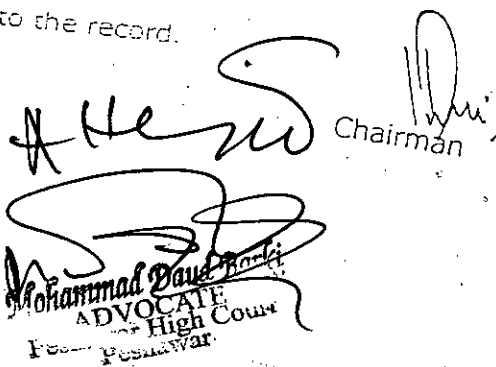 to the record.
Attested
Chairman
Mohammad Daud Barki
ADVOCATE
High Court
Peshawar